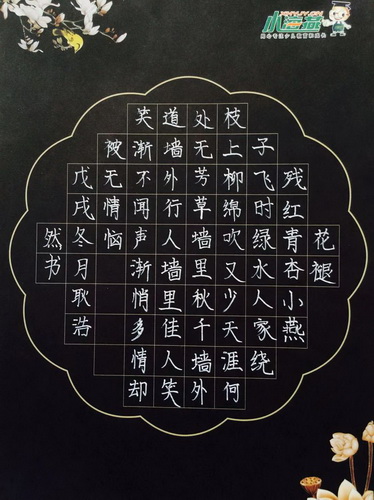 小海燕
花褪
残红青杏小燕
子飞时绿水人家绕
枝上柳绵吹又少天涯何
处无芳草墙里秋千墙外
道墙外行人墙里佳人笑
笑渐不闻声渐悄多情却
被无情恼
戊戌冬月耿浩
然书